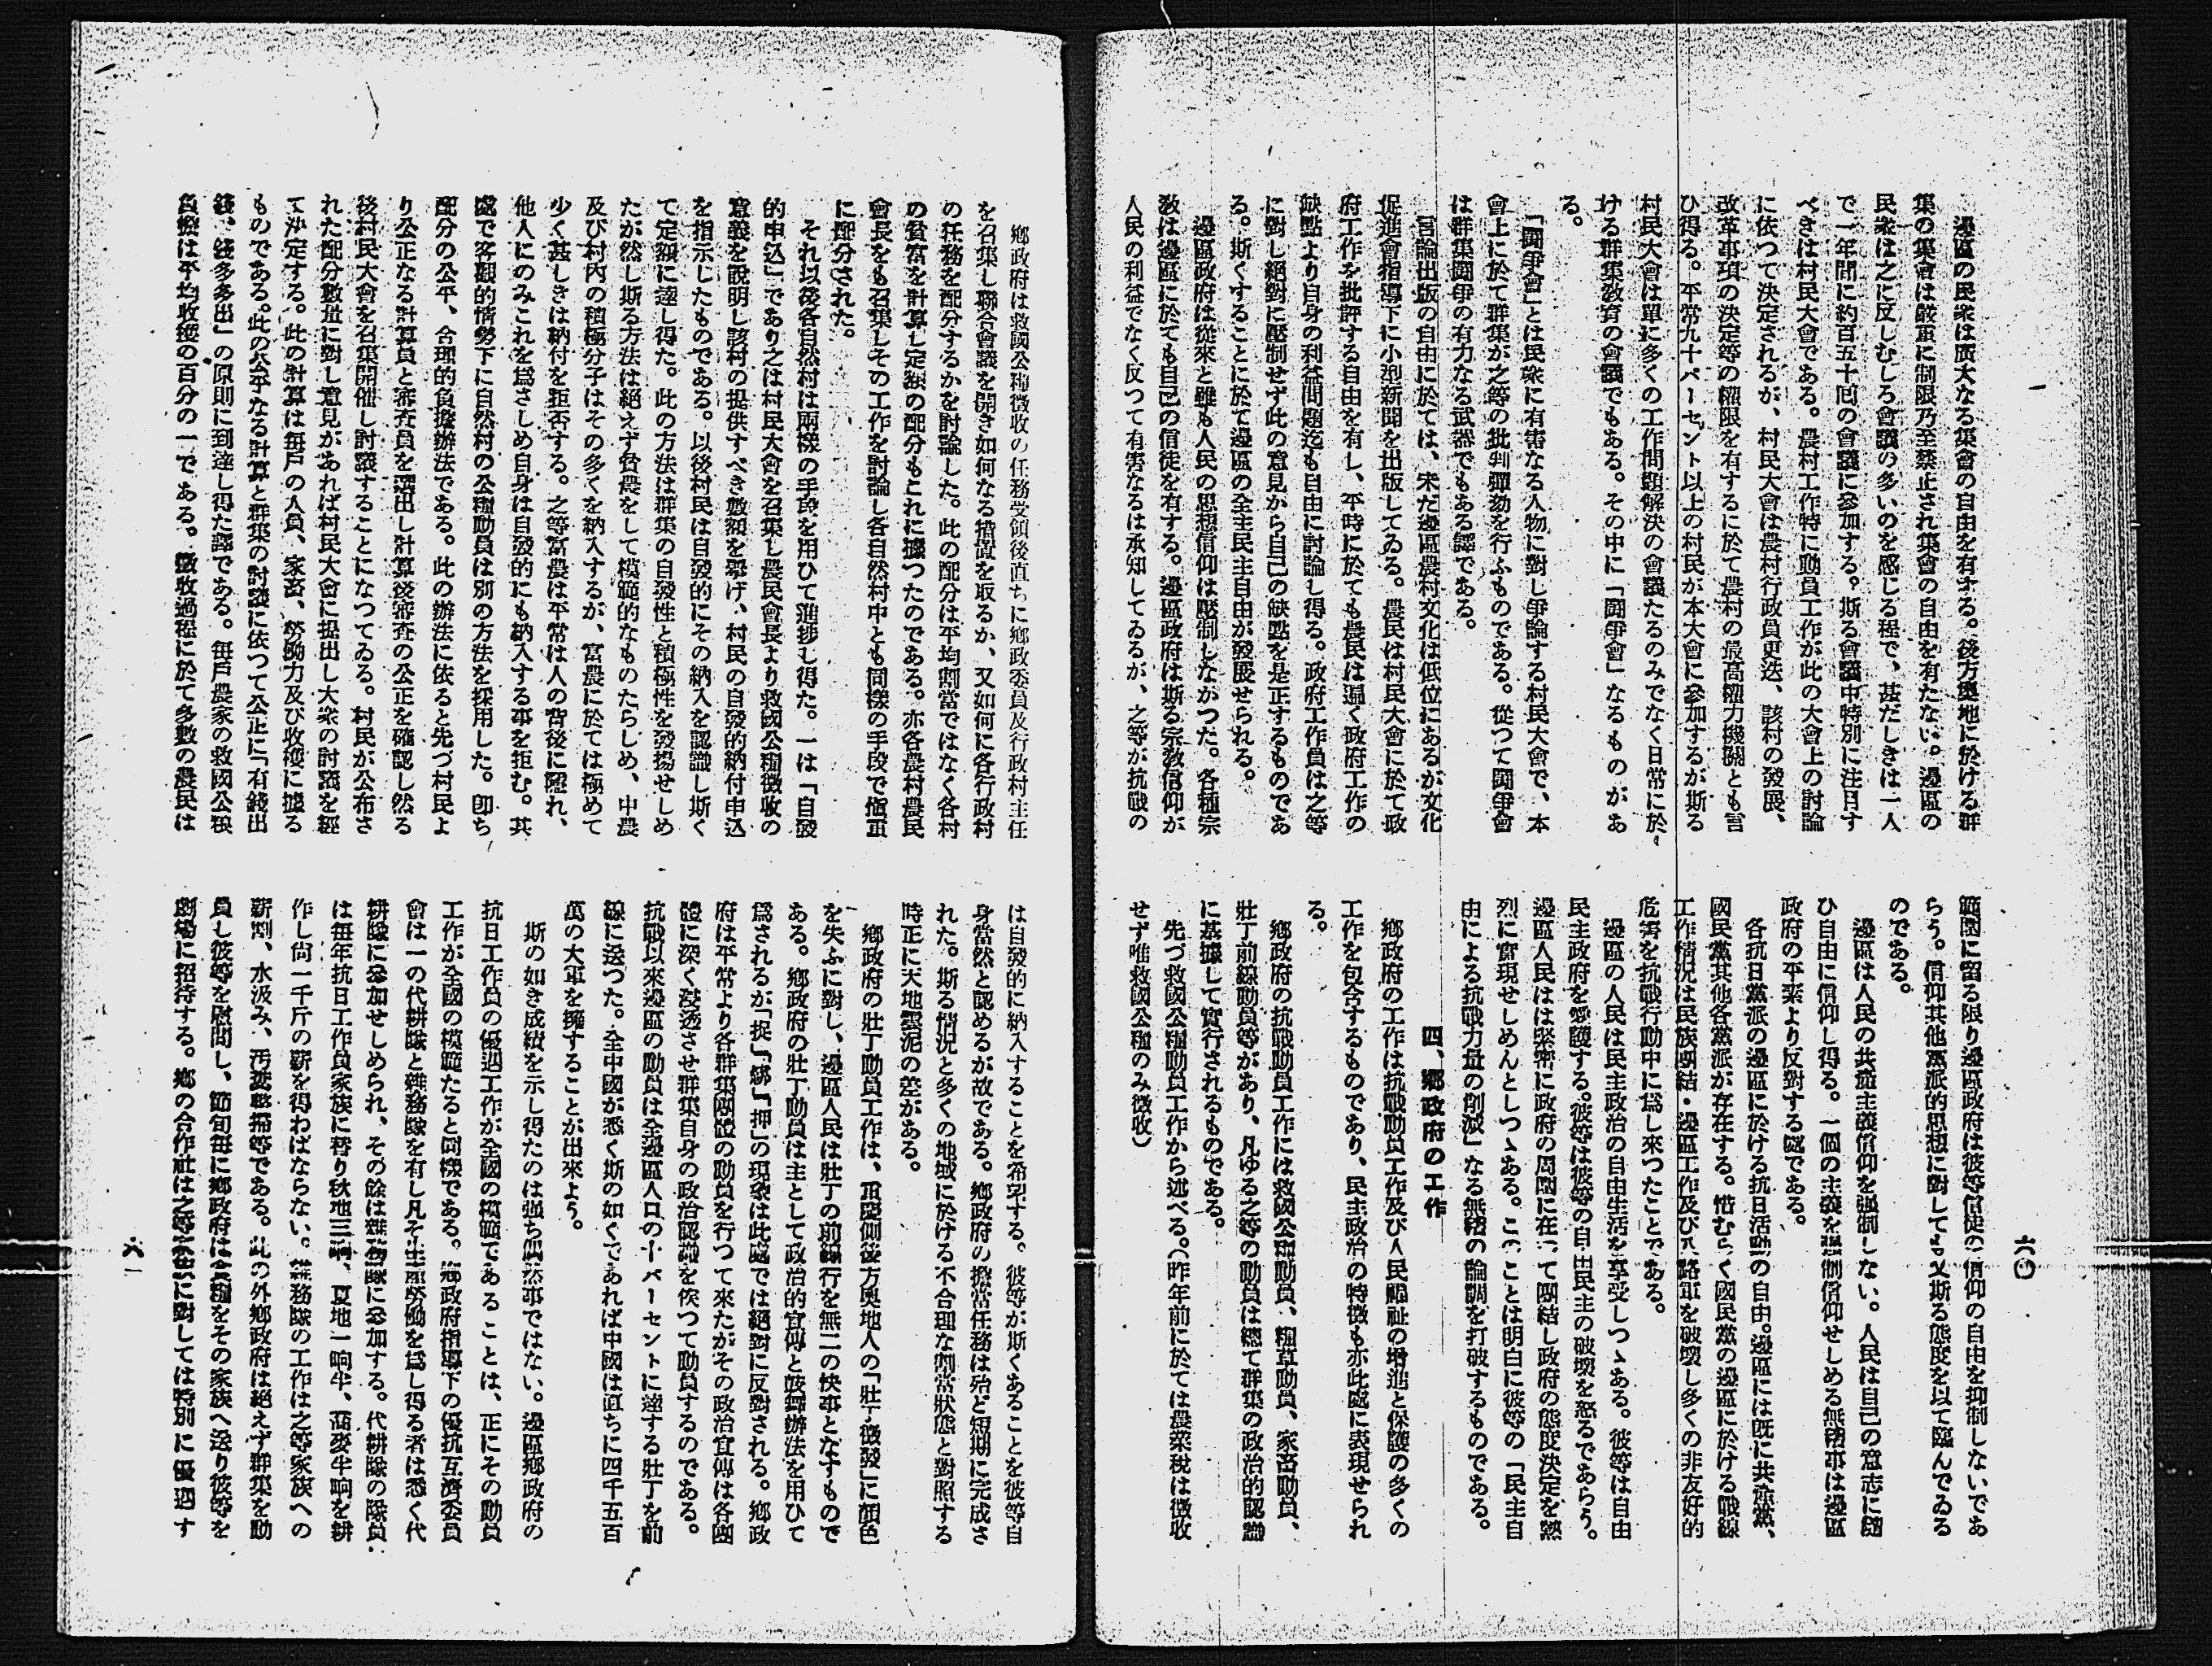 邊區の民衆は廣大なる集會の自由を有する。後方奧地に於ける群
集の集會は嚴重に制限乃至禁止され集會の自由を有たない。邊區の
民衆は之に反しむしろ會議の多いのを感じる程で、甚だしきは一人
で一年間に約百五十回の會議に參加する。斯る會議中特別に注目す
べきは村民大會である。農村工作特に動員工作が此の大會上の討論
に依つて決定されるが、村民大會は農村行政員更迭、該村の發展、
改革事項の決定等の權限を有するに於て農村の最高權力機關とも言
ひ得る。平常九十パーセント以上の村民が本大會に參加するが斯る
村民大會は單に多くの工作問題解決の會議たるのみでなく日常に於
ける群集敎育の會議でもある。その中に「鬪爭會」なるものがあ
る。
「鬪爭會」とは民衆に有害なる人物に對し爭論する村民大會で、本
會上に於て群集が之等の批判彈劾を行ふものである。從つて鬪爭會
は群集鬪爭の有力なる武器でもある譯である。
言論出版の自由に於ては、未だ邊區農村文化は低位にあるが文化
促進會指導下に小型新聞を出版してゐる。農民は村民大會に於て政
府工作を批評する自由を有し、平時に於ても農民は遍く政府工作の
缺點より自身の利益問題迄も自由に討論し得る。政府工作員は之等
に對し絕對に壓制せず此の意見から自己の缺點を是正するものであ
る。斯くすることに於て邊區の全主民主自由が發展せられる。
邊區政府は從來と雖も人民の思想信仰は壓制しなかつた。各種宗
敎は邊區に於ても自己の信徒を有する。邊區政府は斯る宗敎信仰が
人民の利益でなく反つて有害なるは承知してゐるが、之等が抗戰の
範圍に留る限り邊區政府は彼等信徒の信仰の自由を抑制しないであ
らう。信仰其他黨派的思想に對しても又斯る態度を以て臨んでゐる
のである。
邊區は人民の共產主義信仰を强制しない。人民は自己の意志に隨
ひ自由に信仰し得る。一個の主義を强制信仰せしめる無稽事は邊區
政府の平素より反對する處である。
各抗日黨派の邊區に於ける抗日活動の自由。邊區には旣に共產黨、
國民黨其他各黨派が存在する。惜むらく國民黨の邊區に於ける戰線
工作情況は民族團結・邊區工作及び八路軍を破壞し多くの非友好的
危害を抗戰行動中に爲し來つたことである。
邊區の人民は民主政治の自由生活を享受しつゝある。彼等は自由
民主政府を愛護する。彼等は彼等の自由民主の破壞を怒るであらう。
邊區人民はは緊密に政府の周圍に在つて團結し政府の態度決定を熱
烈に實現せしめんとしつゝある。このことは明白に彼等の「民主自
由による抗戰力量の削減」なる無稽の論調を打破するものである。
四、鄉政府の工作
鄉政府の工作は抗戰動員工作及び人民福祉の增進と保護の多くの
工作を包含するものであり、民主政治の特徵も亦此處に表現せられ
る。
鄉政府の抗戰動員工作には救國公糧動員、糧草動員、家畜動員、
壯丁前線動員等があり、凡ゆる之等の動員は總て群集の政治的認識
に基據して實行されるものである。
先づ救國公糧動員工作から述べる。(昨年前に於ては農業稅は徵收
せず唯救國公糧のみ徵收)
六〇
鄉政府は救國公糧徵收の任務受領後直ちに鄉政委員及行政村主任
を召集し聯合會議を開き如何なる措置を取るか、又如何に各行政村
の任務を配分するかを討論した。此の配分は平均割當ではなく各村
の貧富を計算し定額の配分もこれに據つたのである。亦各農村農民
會長をも召集しその工作を討論し各自然村中とも同樣の手段で愼重
に配分された。
それ以後各自然村は兩樣の手段を用ひて進捗し得た。一は「自發
的申込」であり之は村民大會を召集し農民會長より救國公糧徵收の
意義を說明し該村の提供すべき數額を擧げ、村民の自發的納付申込
を指示したものである。以後村民は自發的にその納入を認識し斯く
て定額に達し得た。此の方法は群集の自發性と積極性を發揚せしめ
たが然し斯る方法は絕えず貧農をして模範的なものたらしめ、中農
及び村內の積極分子はその多くを納入するが、富農に於ては極めて
少く甚しきは納付を拒否する。之等富農は平常は人の背後に隱れ、
他人にのみこれを爲さしめ自身は自發的にも納入する事を拒む。其
處で客觀的情勢下に自然村の公糧動員は別の方法を採用した。卽ち
配分の公平、合理的負擔辦法である。此の辦法に依ると先づ村民よ
り公正なる計算員と審査員を選出し計算後審査の公正を確認し然る
後村民大會を召集開催し討議することになつてゐる。村民が公布さ
れた配分數量に對し意見があれば村民大會に提出し大衆の討議を經
て決定する。此の計算は每戶の人員、家畜、勞働力及び收穫に據る
ものである。此の公平なる計算と群集の討議に依つて公正に「有錢出
錢、錢多多出」の原則に到達し得た譯である。每戶農家の救國公糧
負擔は平均收穫の百分の一である。徵收過程に於て多數の農民は
は自發的に納入することを希望する。彼等が斯くあることを彼等自
身當然と認めるが故である。鄉政府の擔當任務は殆ど短期に完成さ
れた。斯る情況と多くの地域に於ける不合理な割當狀態と對照する
時正に天地雲泥の差がある。
鄉政府の壯丁動員工作は、重慶側後方奧地人の「壯丁徵發」に顏色
を失ふに對し、邊區人民は壯丁の前線行を無二の快事となすもので
ある。鄉政府の壯丁動員は主として政治的宣傳と鼓舞辦法を用ひて
爲されるが「捉」「綁」「押」の現象は此處では絕對に反對される。鄉政
府は平常より各群集團體の動員を行つて來たがその政治宣傳は各團
體に深く浸透させ群集自身の政治認識を俟つて動員するのである。
抗戰以來邊區の動員は全邊區人口の十パーセントに達する壯丁を前
線に送つた。全中國が悉く斯の如くであれば中國は直ちに四千五百
萬の大軍を擁することが出來よう。
斯の如き成績を示し得たのは强ち偶然事ではない。邊區鄉政府の
抗日工作員の優遇工作が全國の模範であることは、正にその動員
工作が全國の模範たると同樣である。鄉政府指導下の優抗互濟委員
會は一の代耕隊と雜務隊を有し凡そ生產勞働を爲し得る者は悉く代
耕隊に參加せしめられ、その餘は雜務隊に參加する。代耕隊の隊員
は每年抗日工作員家族に替り秋地三晌、夏地一晌半、蕎麥半晌を耕
作し尙一千斤の薪を得わばならない。雜務隊の工作は之等家族への
薪割、水汲み、汚穢整掃等である。此の外鄉政府は絕えず群集を動
員し彼等を慰問し、節旬每に鄉政府は食糧をその家族へ送り彼等を
劇場に招待する。鄉の合作社は之等家族に對しては特別に優遇す
六一